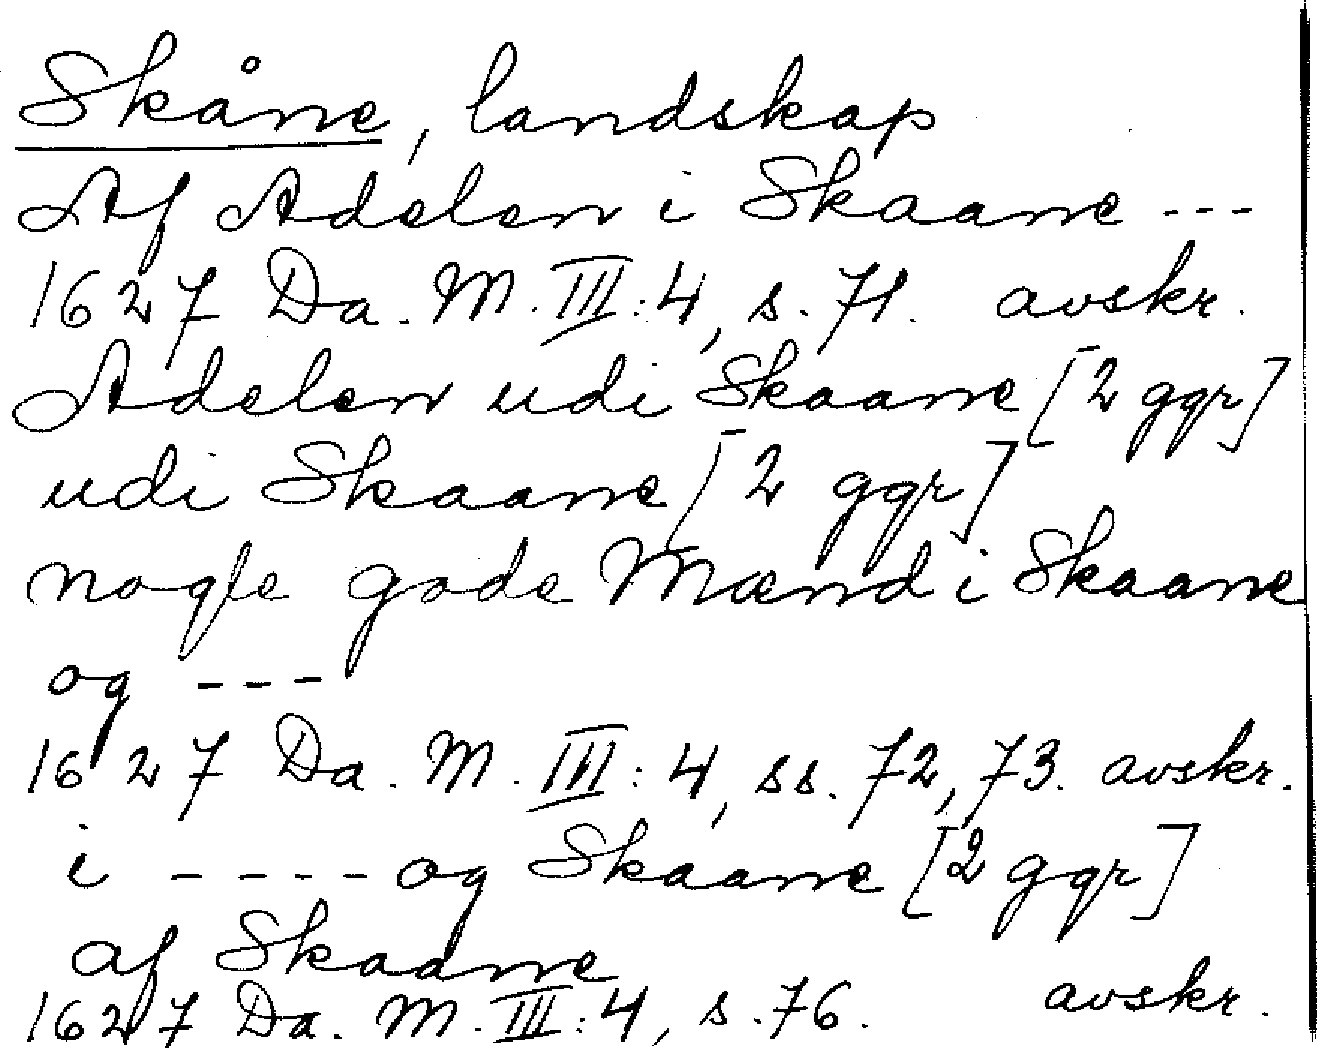 Skåne, landskap
Af Adelen i Skaane ---
1627 Da. M. III: 4, s. 71. avskr.
Adelen udi Skaane [2 ggr]
udi Skaane [2 ggr]
nogle gode Mænd i Skaane
og ---
1627 Da. M. III: 4, ss. 72, 73. avskr.
i ---- og Skaane [2 ggr]
af Skaane
1627 Da. M. III: 4, s. 76. avskr.